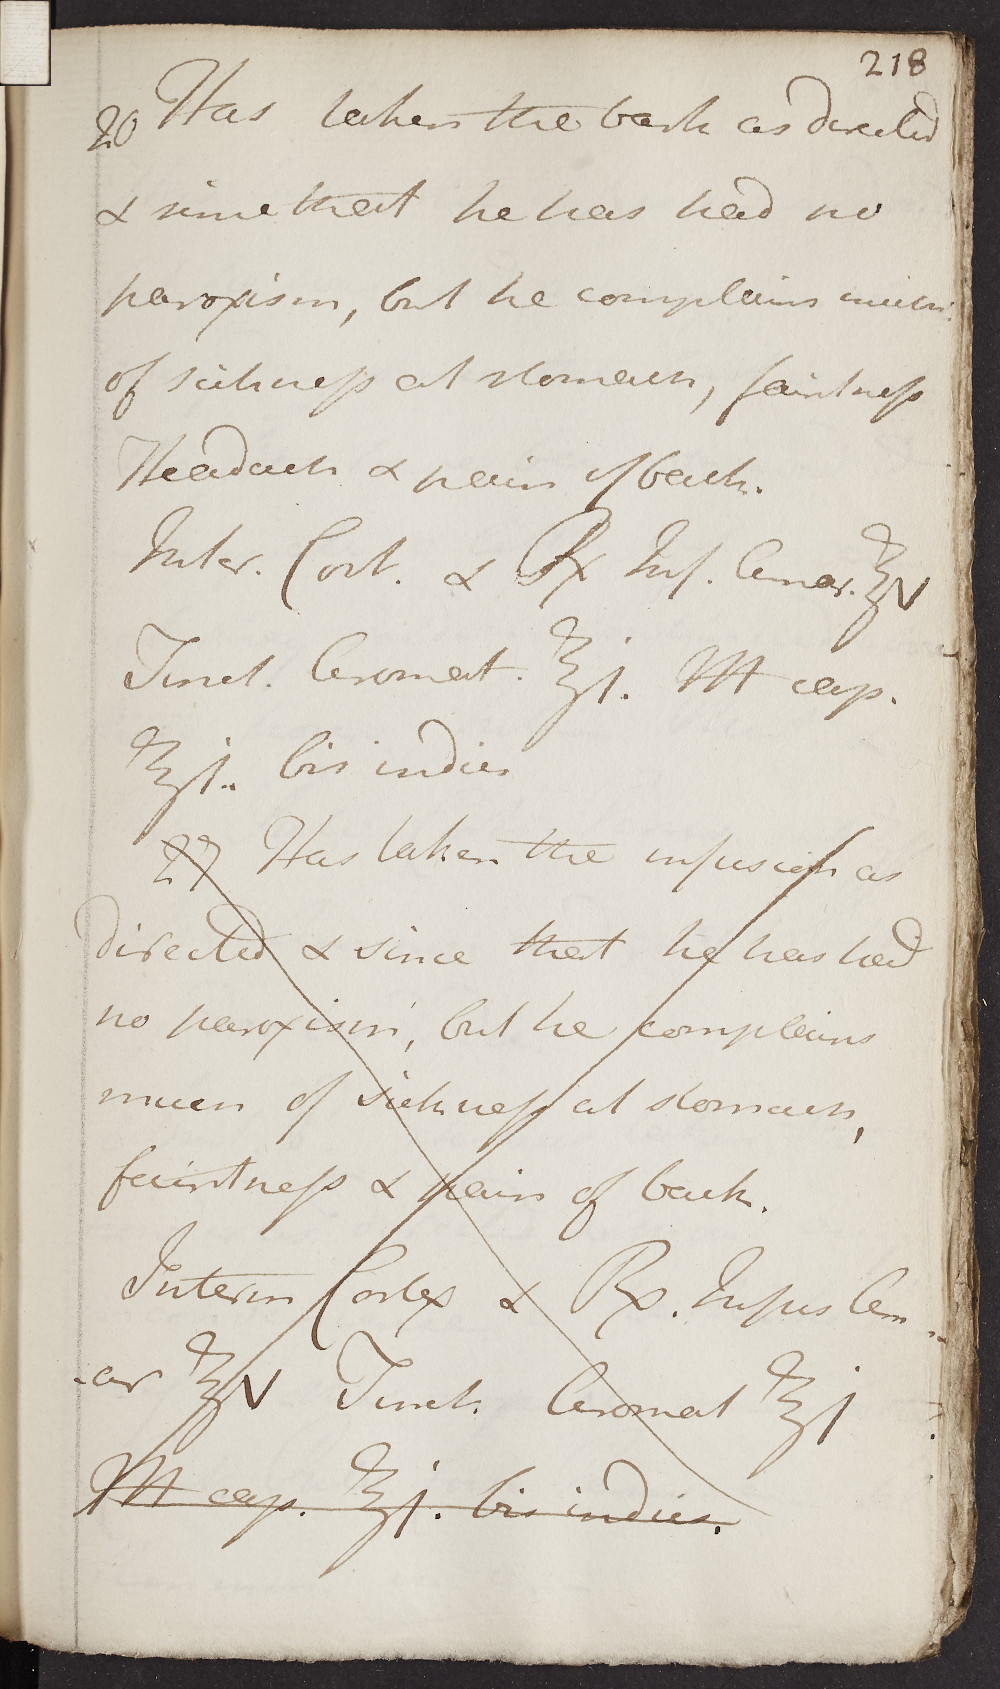 218
20 Has taken the bark as directed
& since that he has had no
paroxism, but he complains much
of sickness at stomach, faintness
Headach & pain of back.
Inter. Cort. & ℞ Inf. Amar. ℥V
Tinct. Aromat. ℥j. M cap.
℥j. bis indies
27 Has taken the infusion as
directed & since that he has had
no paroxism, but he complains
much of sickness at stomach,
faintness & pain of back.
Interm Cortex & ℞. Infus Am
-ar ℥V Tinct. Aromat ℥j
M cap. ℥j. bis indies.